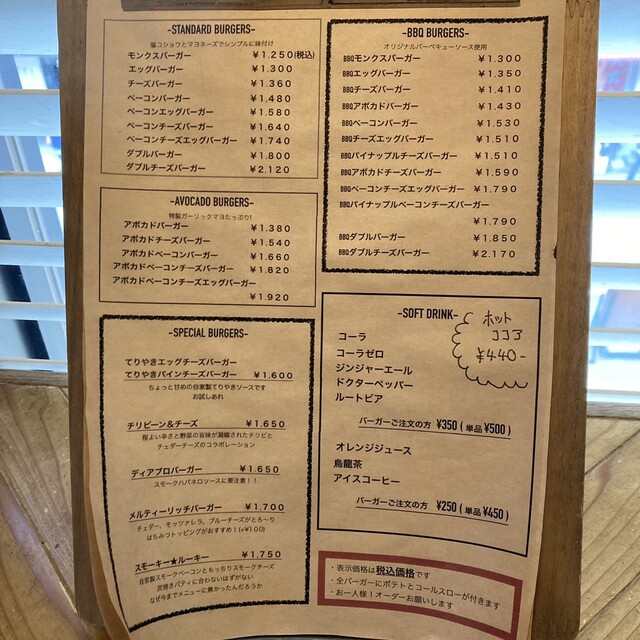 -STANDARD BURGERS-
塩コショウとマヨネーズでシンプルに味付け
モンクスバーガー ¥1.250(税込)
エッグバーガー ¥1.300
チーズバーガー ¥1.360
ベーコンバーガー ¥1.480
ベーコンエッグバーガー ¥1.580
ベーコンチーズバーガー ¥1.640
ベーコンチーズエッグバーガー ¥1.740
ダブルバーガー ¥1.800
ダブルチーズバーガー ¥2.120
-AVOCADO BURGERS-
特製ガーリックマヨたっぷり!
アボカドバーガー ¥1.380
アボカドチーズバーガー ¥1.540
アボカドベーコンバーガー ¥1.660
アボカドベーコンチーズバーガー ¥1.820
アボカドベーコンチーズエッグバーガー
¥1.920
-SPECIAL BURGERS-
てりやきエッグチーズバーガー
てりやきパインチーズバーガー ¥1.600
ちょっと甘めの自家製てりやきソースです
お試しあれ
チリビーン&チーズ ¥1.650
程よい辛さと野菜の旨味が凝縮されたチリビと
チェダーチーズのコラボレーション
ディアブロバーガー ¥1.650
スモークハバネロソースに要注意!!
メルティーリッチバーガー ¥1.700
チェダー、モッツァレラ、ブルーチーズがとろ〜り
はちみつトッピングがおすすめ!(+¥100)
スモーキー★ルーキー ¥1.750
自家製スモークベーコンともっちりスモークチーズ
炭焼きパティに合わないはずがない
なぜ今までメニューに無かったんだろうか
-BBQ BURGERS-
オリジナルバーベキューソース使用
BBQモンクスバーガー ¥1.300
BBQエッグバーガー ¥1.350
BBQチーズバーガー ¥1.410
BBQアボカドバーガー ¥1.430
BBQベーコンバーガー ¥1.530
BBQチーズエッグバーガー ¥1.510
BBQパイナップルチーズバーガー ¥1.510
BBQアボカドチーズバーガー ¥1.590
BBQベーコンチーズエッグバーガー ¥1.790
BBQパイナップルベーコンチーズバーガー
¥1.790
BBQダブルバーガー ¥1.850
BBQダブルチーズバーガー ¥2.170
-SOFT DRINK-
コーラ
コーラゼロ
ジンジャーエール
ドクターペッパー
ルートビア
バーガーご注文の方 ¥350(単品¥500)
オレンジジュース
烏龍茶
アイスコーヒー
バーガーご注文の方 ¥250(単品¥450)
ホット
ココア
¥440-
・表示価格は税込価格です
・全バーガーにポテトとコールスローが付きます
・お一人様1オーダーお願いします